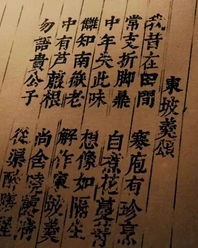 東坡羹頌
我昔在田間 寒庖有珍烹
常支折脚鼎 自煮花蔓菁
中年失此味 想像如隔生
知南老 解作東坡羹
中有芦菔根 尚含曉露清
勿語貴公子 從渠醉膻腥